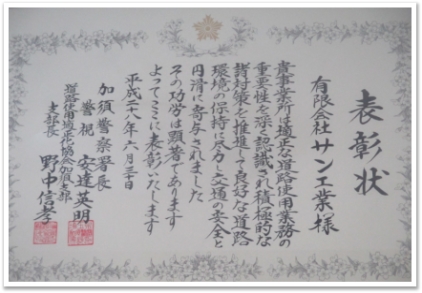 表彰状
有限会社 サン工業 様
貴事業所は適正な道路使用業務の
重要性を深く認識され積極的な
諸対策を推進して良好な道路
環境の保持に尽力し交通の安全と
円滑に寄与されました
その功労は顕著であります
よってここに表彰いたします
平成二十八年六月三十日
加須警察署長
警視 安達英明
道路使用適正化協会加須支部
支部長 野中信孝